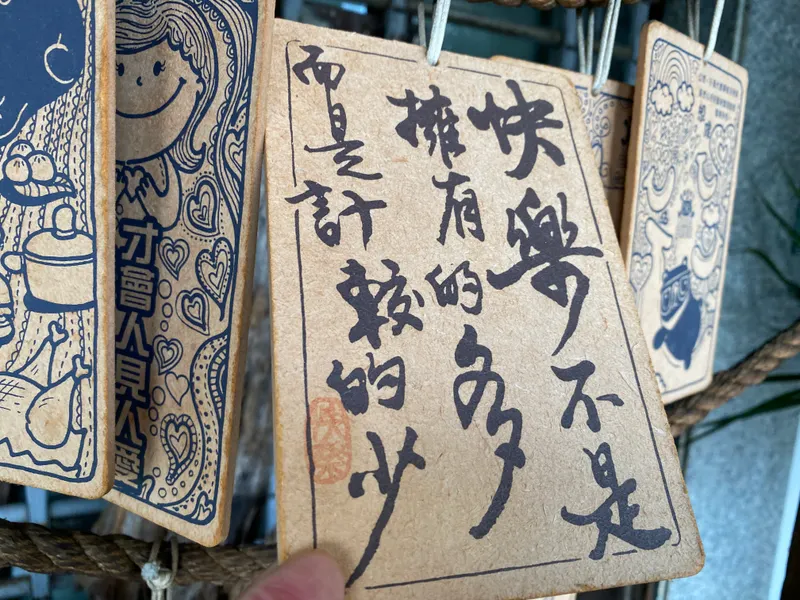 快樂不是
擁有的多
而是計較的少
快樂
才會人見人樂